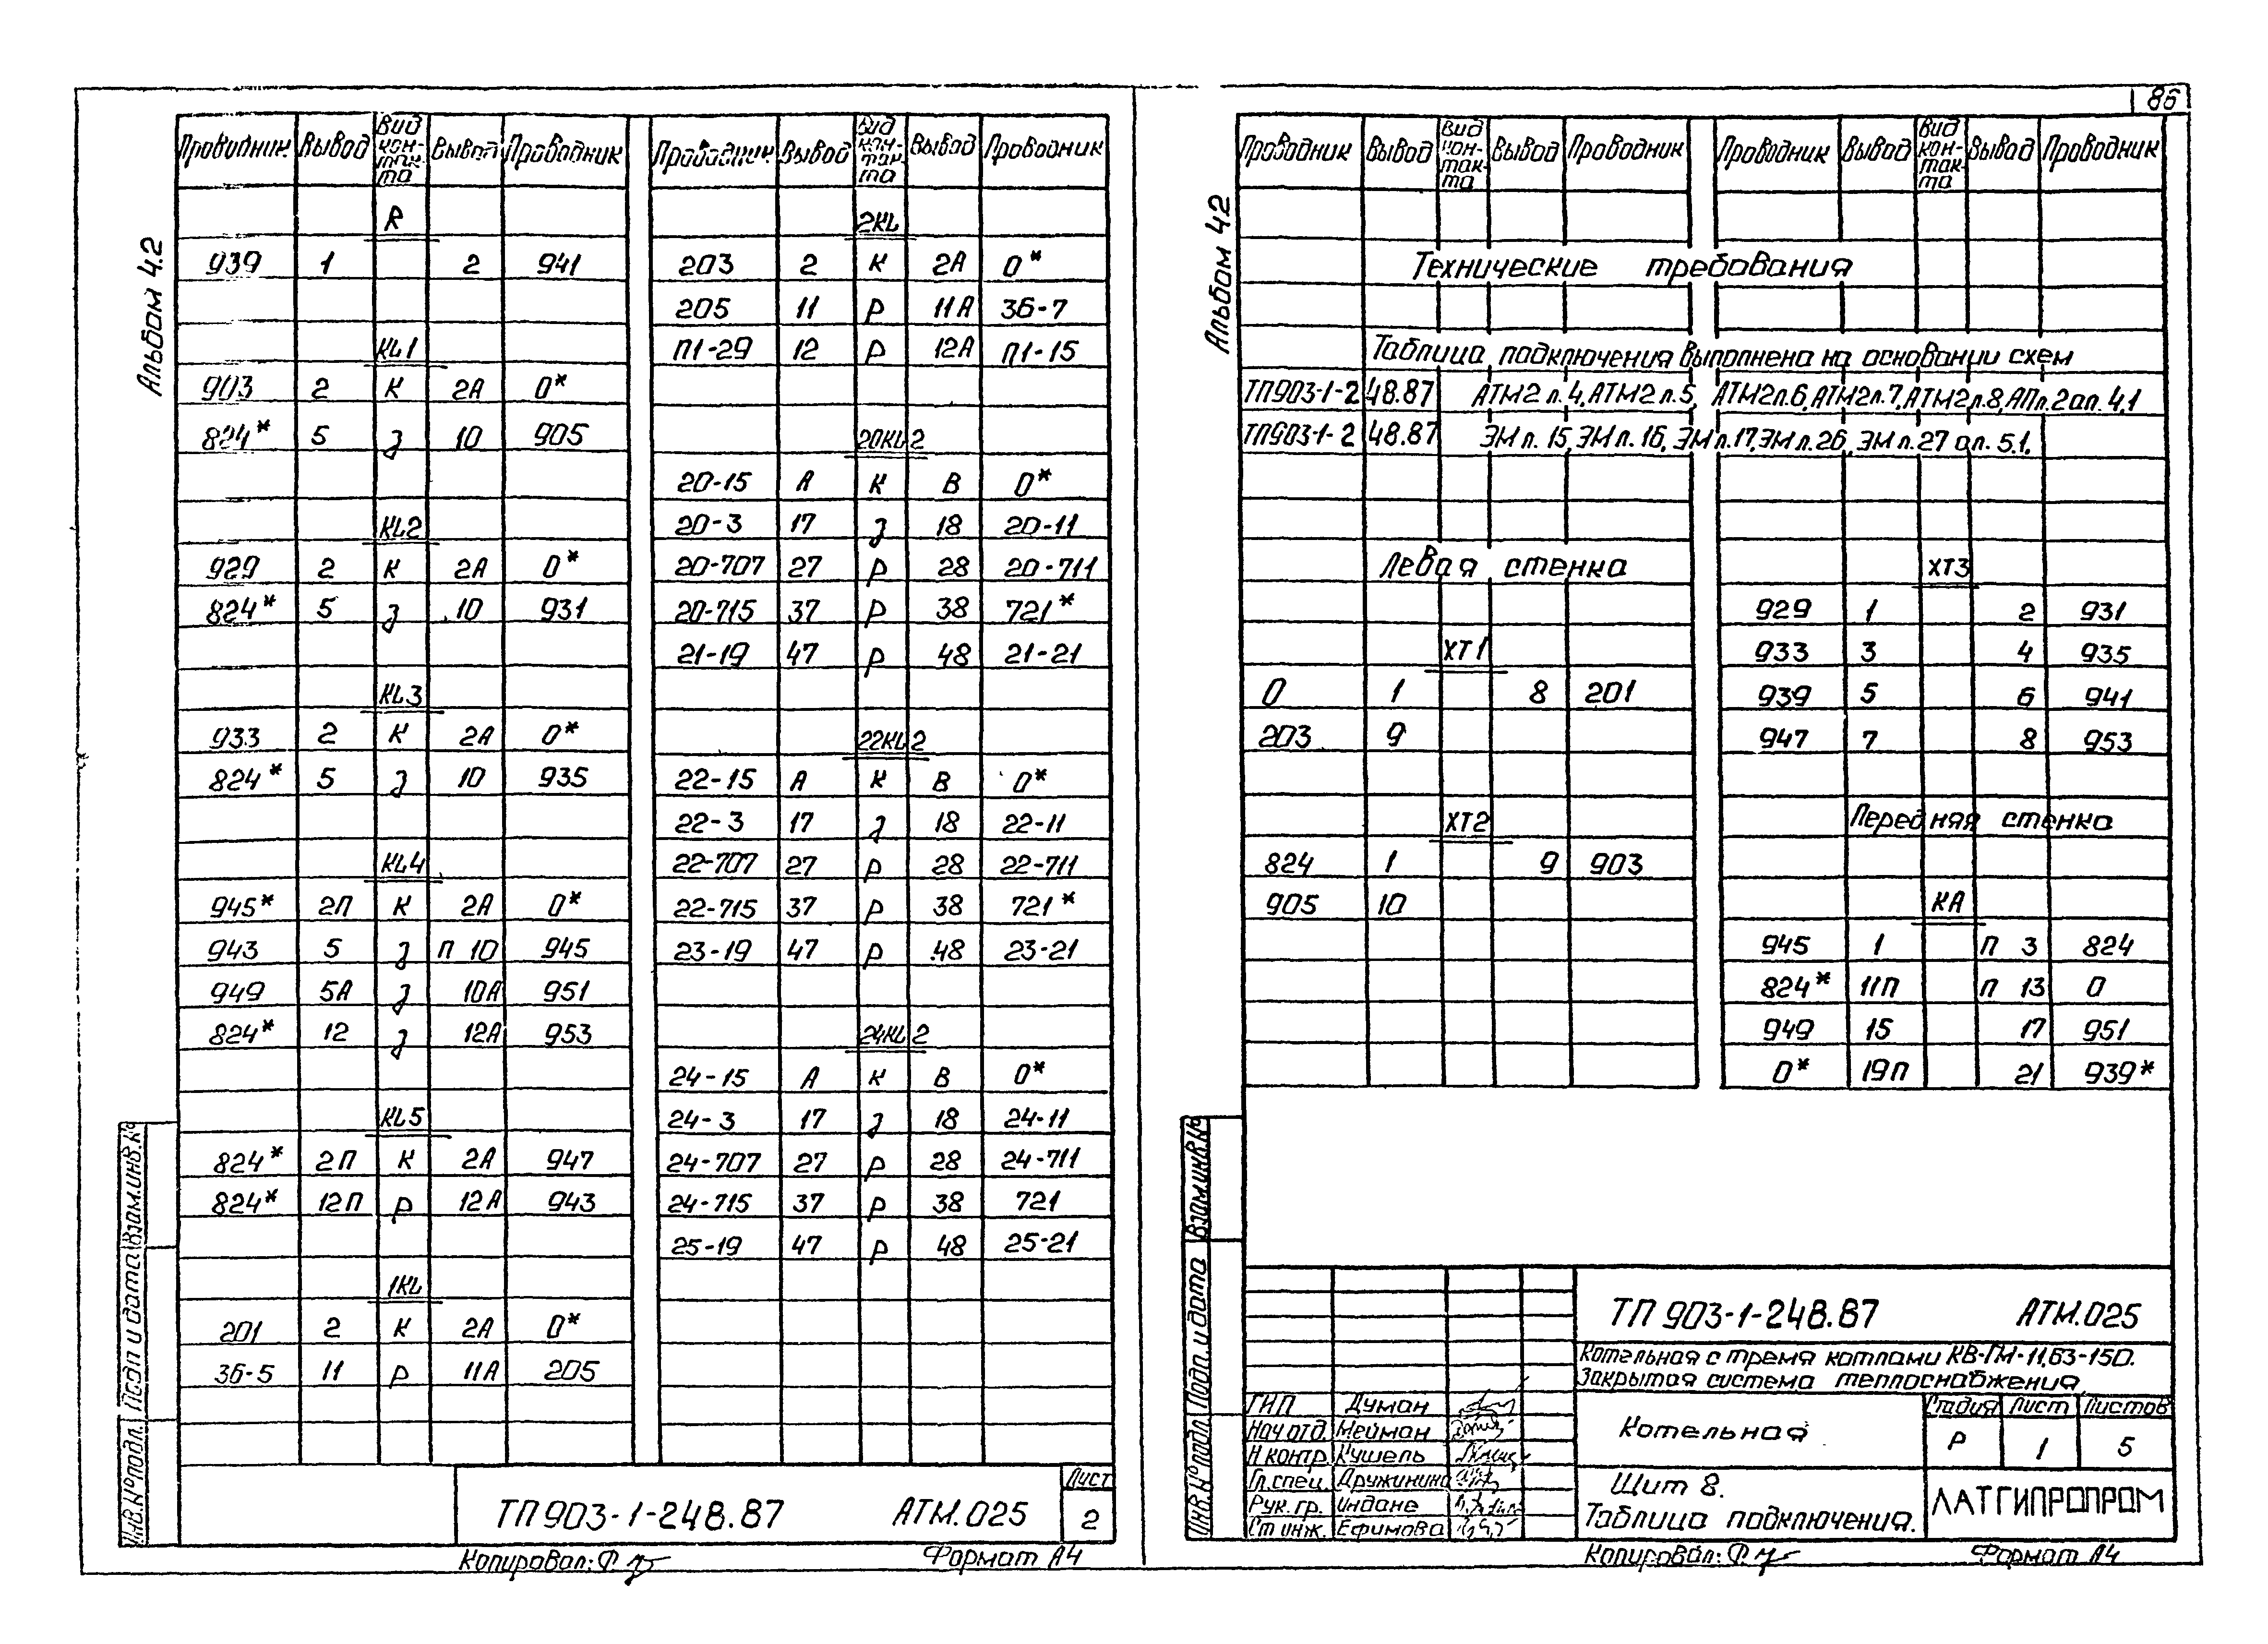 86
Альбом 4.2
Проводник Вывод Вид кон-так-та Вывод Проводник
R
939 1 2 941
KL1
903 2 К 2А 0*
824* 5 з 10 905
KL2
929 2 К 2А 0*
824* 5 з 10 931
KL3
933 2 К 2А 0*
824* 5 з 10 935
KL4
945* 2П К 2А 0*
943 5 з П 10 945
949 5А з 10А 951
824* 12 з 12А 953
KL5
824* 2П К 2А 947
824* 12П Р 12А 943
1KL
201 2 К 2А 0*
36-5 11 Р 11А 205
Проводник Вывод Вид кон-так-та Вывод Проводник
2KL
203 2 К 2А 0*
205 11 Р 11А 36-7
П1-29 12 Р 12А П1-15
20KL2
20-15 А К В 0*
20-3 17 з 18 20-11
20-707 27 Р 28 20-711
20-715 37 Р 38 721*
21-19 47 Р 48 21-21
22KL2
22-15 А К В 0*
22-3 17 з 18 22-11
22-707 27 Р 28 22-711
22-715 37 Р 38 721*
23-19 47 Р 48 23-21
24KL2
24-15 А К В 0*
24-3 17 з 18 24-11
24-707 27 Р 28 24-711
24-715 37 Р 38 721
25-19 47 Р 48 25-21
Инв.№подл. Подп и дата Взам.инв.№
ТП 903-1-248.87 АТМ.025
Лист
2
Копировал: Ф. Формат А4
Альбом 4.2
Проводник Вывод Вид кон-так-та Вывод Проводник Проводник Вывод Вид кон-так-та Вывод Проводник
Технические требования
Таблица подключения выполнена на основании схем
ТП903-1-248.87 АТМ2 л.4, АТМ2 л.5, АТМ2л.6, АТМ2л.7, АТМ2л.8, АПл.2 ал. 4,1
ТП903-1-248.87 ЭМ л. 15, ЭМ л. 16, ЭМ л.17, ЭМ л.26, ЭМ л.27 ал. 5.1.
Левая стенка
ХТ1
0 1 8 201
203 9
ХТ2
824 1 9 903
905 10
ХТ3
929 1 2 931
933 3 4 935
939 5 6 941
947 7 8 953
Передняя стенка
КА
945 1 П 3 824
824* 11П П 13 0
949 15 17 951
0* 19П 21 939*
Инв.№подл. Подп. и дата Взам.инв.№
ТП 903-1-248.87 АТМ.025
Котельная с тремя котлами КВ-ГМ-11,63-150.
Закрытая система теплоснабжения
ГИП Думан
Нач отд. Мейман
Н контр. Кушель
Гл.спец. Дружинина
Рук. гр. Индане
Ст инж. Ефимова
Котельная
Стадия Лист Листов
Р 1 5
Щит 8.
Таблица подключения.
ЛАТГИПРОПРОМ
Копировал: Ф. Формат А4